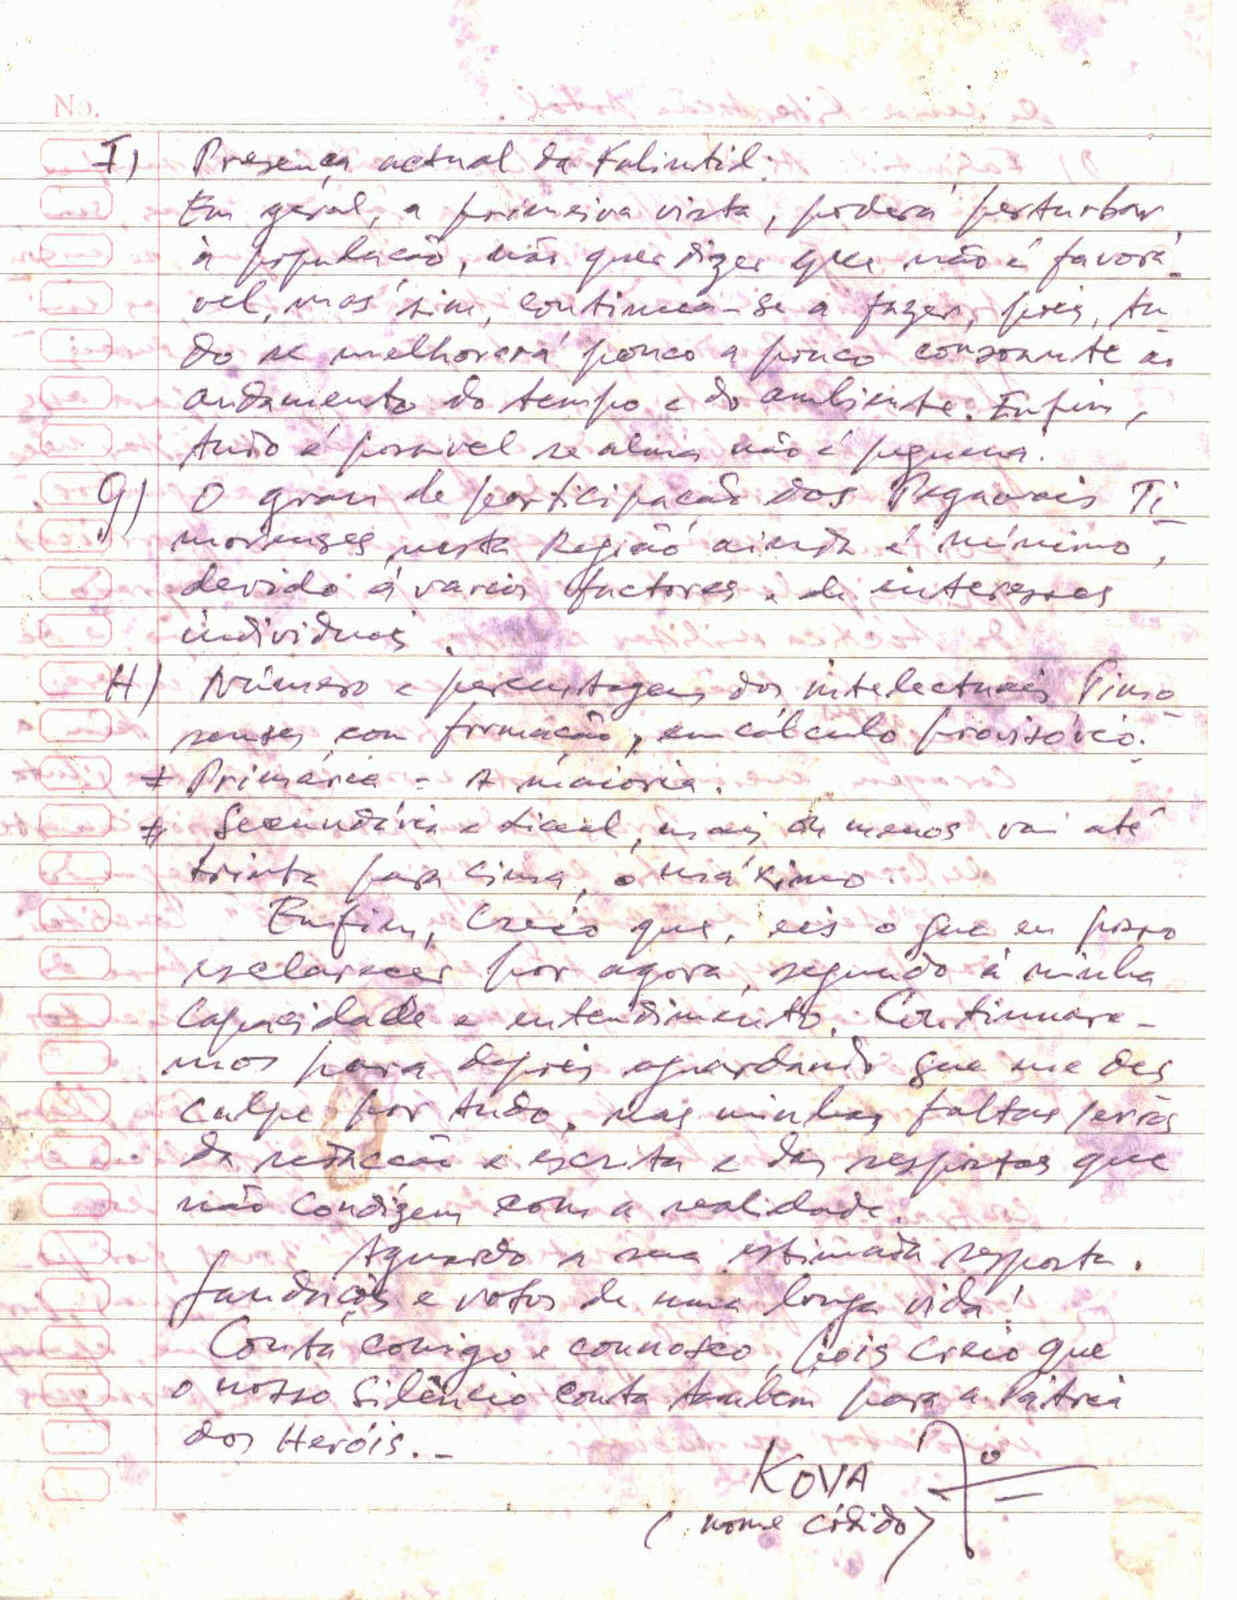 F) Presença actual da Falintil:
Em geral, a primeira vista, poderá perturbar
à população, não quer dizer que não é favorá-
vel, mas sim, continua-se a fazer, pois, tu-
do se melhorará pouco a pouco consoante ao
andamento do tempo e do ambiente. Enfim,
tudo é possível se alma não é pequena.
G) O grau de participação dos Ti-
morenses nesta Região ainda é mínimo,
devido á varios factores e de interesses
individuais.
H) Número e percentagem dos intelectuais Timo-
renses com formação, em cálculo provisório:
* Primária = A maioria.
* Secundária e Liceal, mais ou menos vai até
trinta para cima, o máximo.
Enfim, Creio que, eis o que eu posso
esclarecer por agora, segundo á minha
Capacidade e entendimento. Continuare-
mos para depois aguardando que me des
culpe por tudo, nas minhas faltas
da redacção e escrita e das respostas que
não Condizem com a realidade.
Aguardo a sua estimada resposta.
Saudações e votos de uma longa vida!
Conta comigo e connosco, pois creio que
o nosso silêncio conta tambem para a Pátria
dos Heróis._
KOVA
(nome códido)